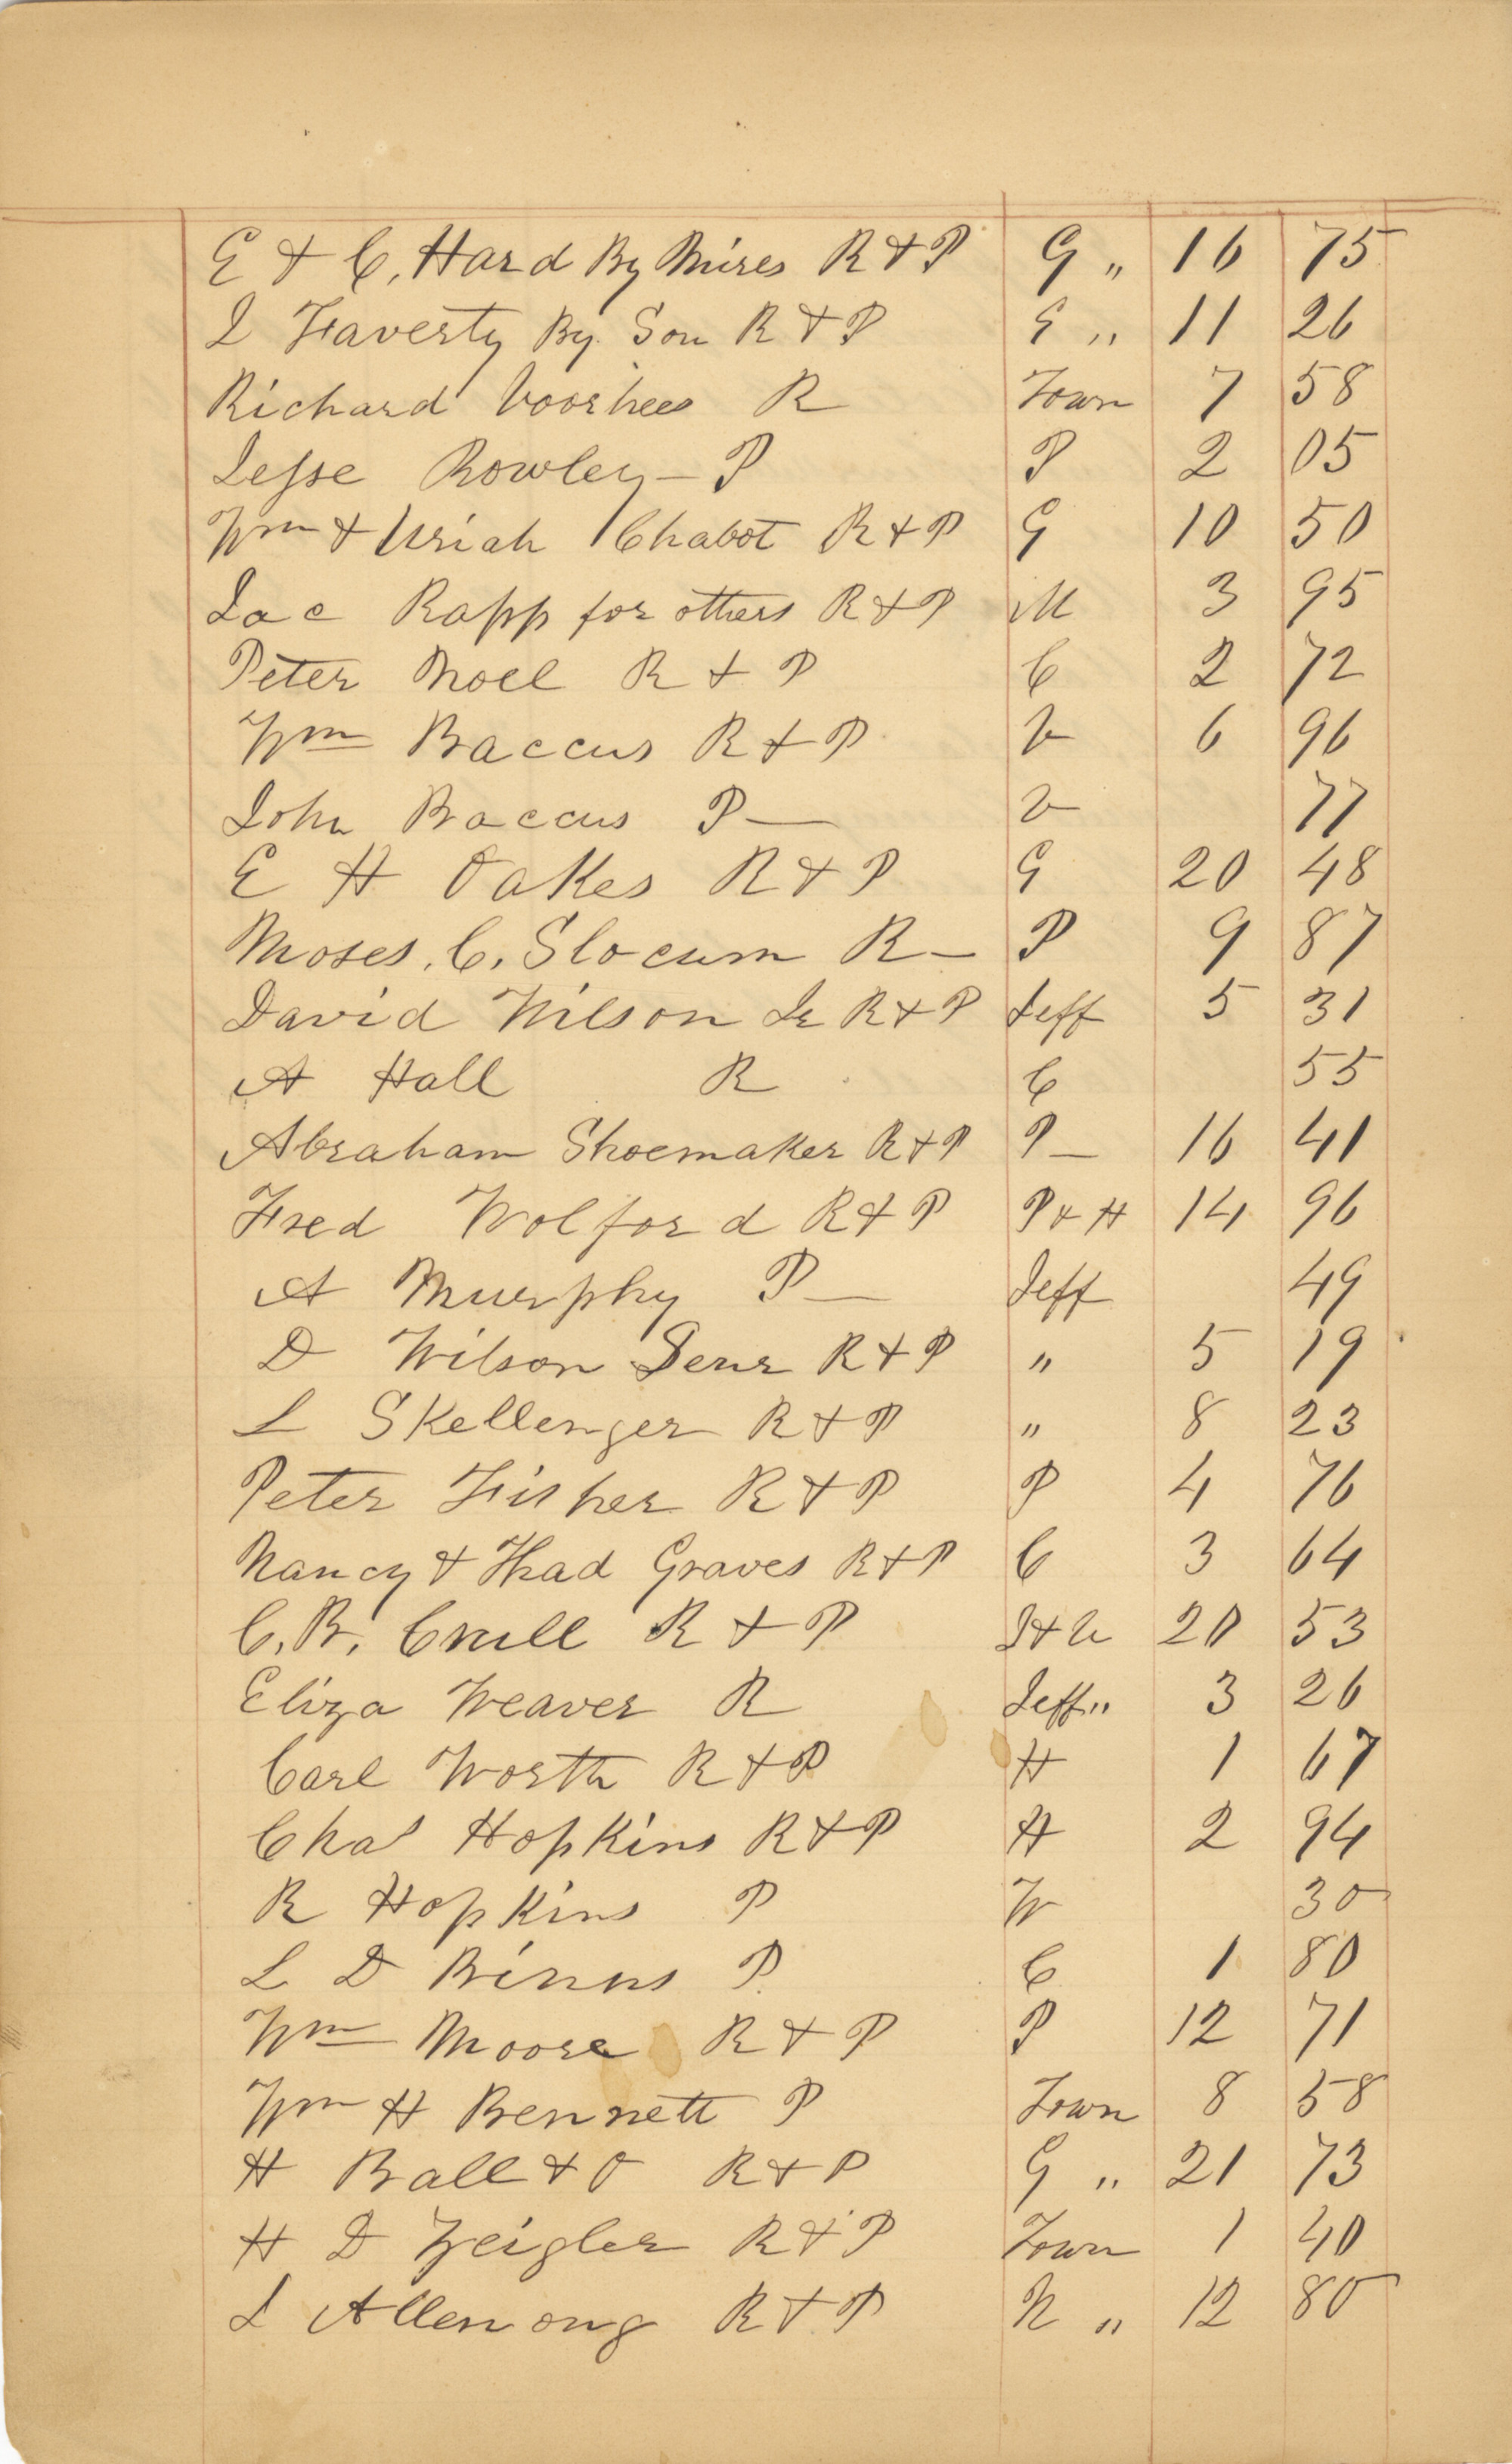 E & C. Hard By Mires R & P G " 16 75
J Faverty By Son R & P G " 11 26
Richard Voorhees R Town 7 58
Jesse Rowley - P P 2 05
Wm & Uriah Chabot R & P G 10 50
Jac Rapp for others R & P M 3 95
Peter Noel R & P C 2 72
Wm Baccus R & P V 6 96
John Baccus P — V 77
E H Oakes R & P G 20 48
Moses. C. Slocum R — P 9 87
David Wilson Jr R & P Jeff 5 31
A Hall R C 55
Abraham Shoemaker R & P P — 16 41
Fred Wolford R & P P & H 14 96
A Murphy P — Jeff 49
D Wilson Senr R & P " 5 19
L Skellenger R & P " 8 23
Peter Fisher R & P P 4 76
Nancy & Thad Graves R & P C 3 64
C. B. Crull R & P J & U 20 53
Eliza Weaver R Jeff " 3 26
Carl Worth R & P H 1 67
Chas Hopkins R & P H 2 94
R Hopkins P W 30
L D Binns P C 1 80
Wm Moore R & P P 12 71
Wm H Bennett P Town 8 58
H Ball & O R & P G " 21 73
H D Zeigler R & P Town 1 40
R & P N " 12 80